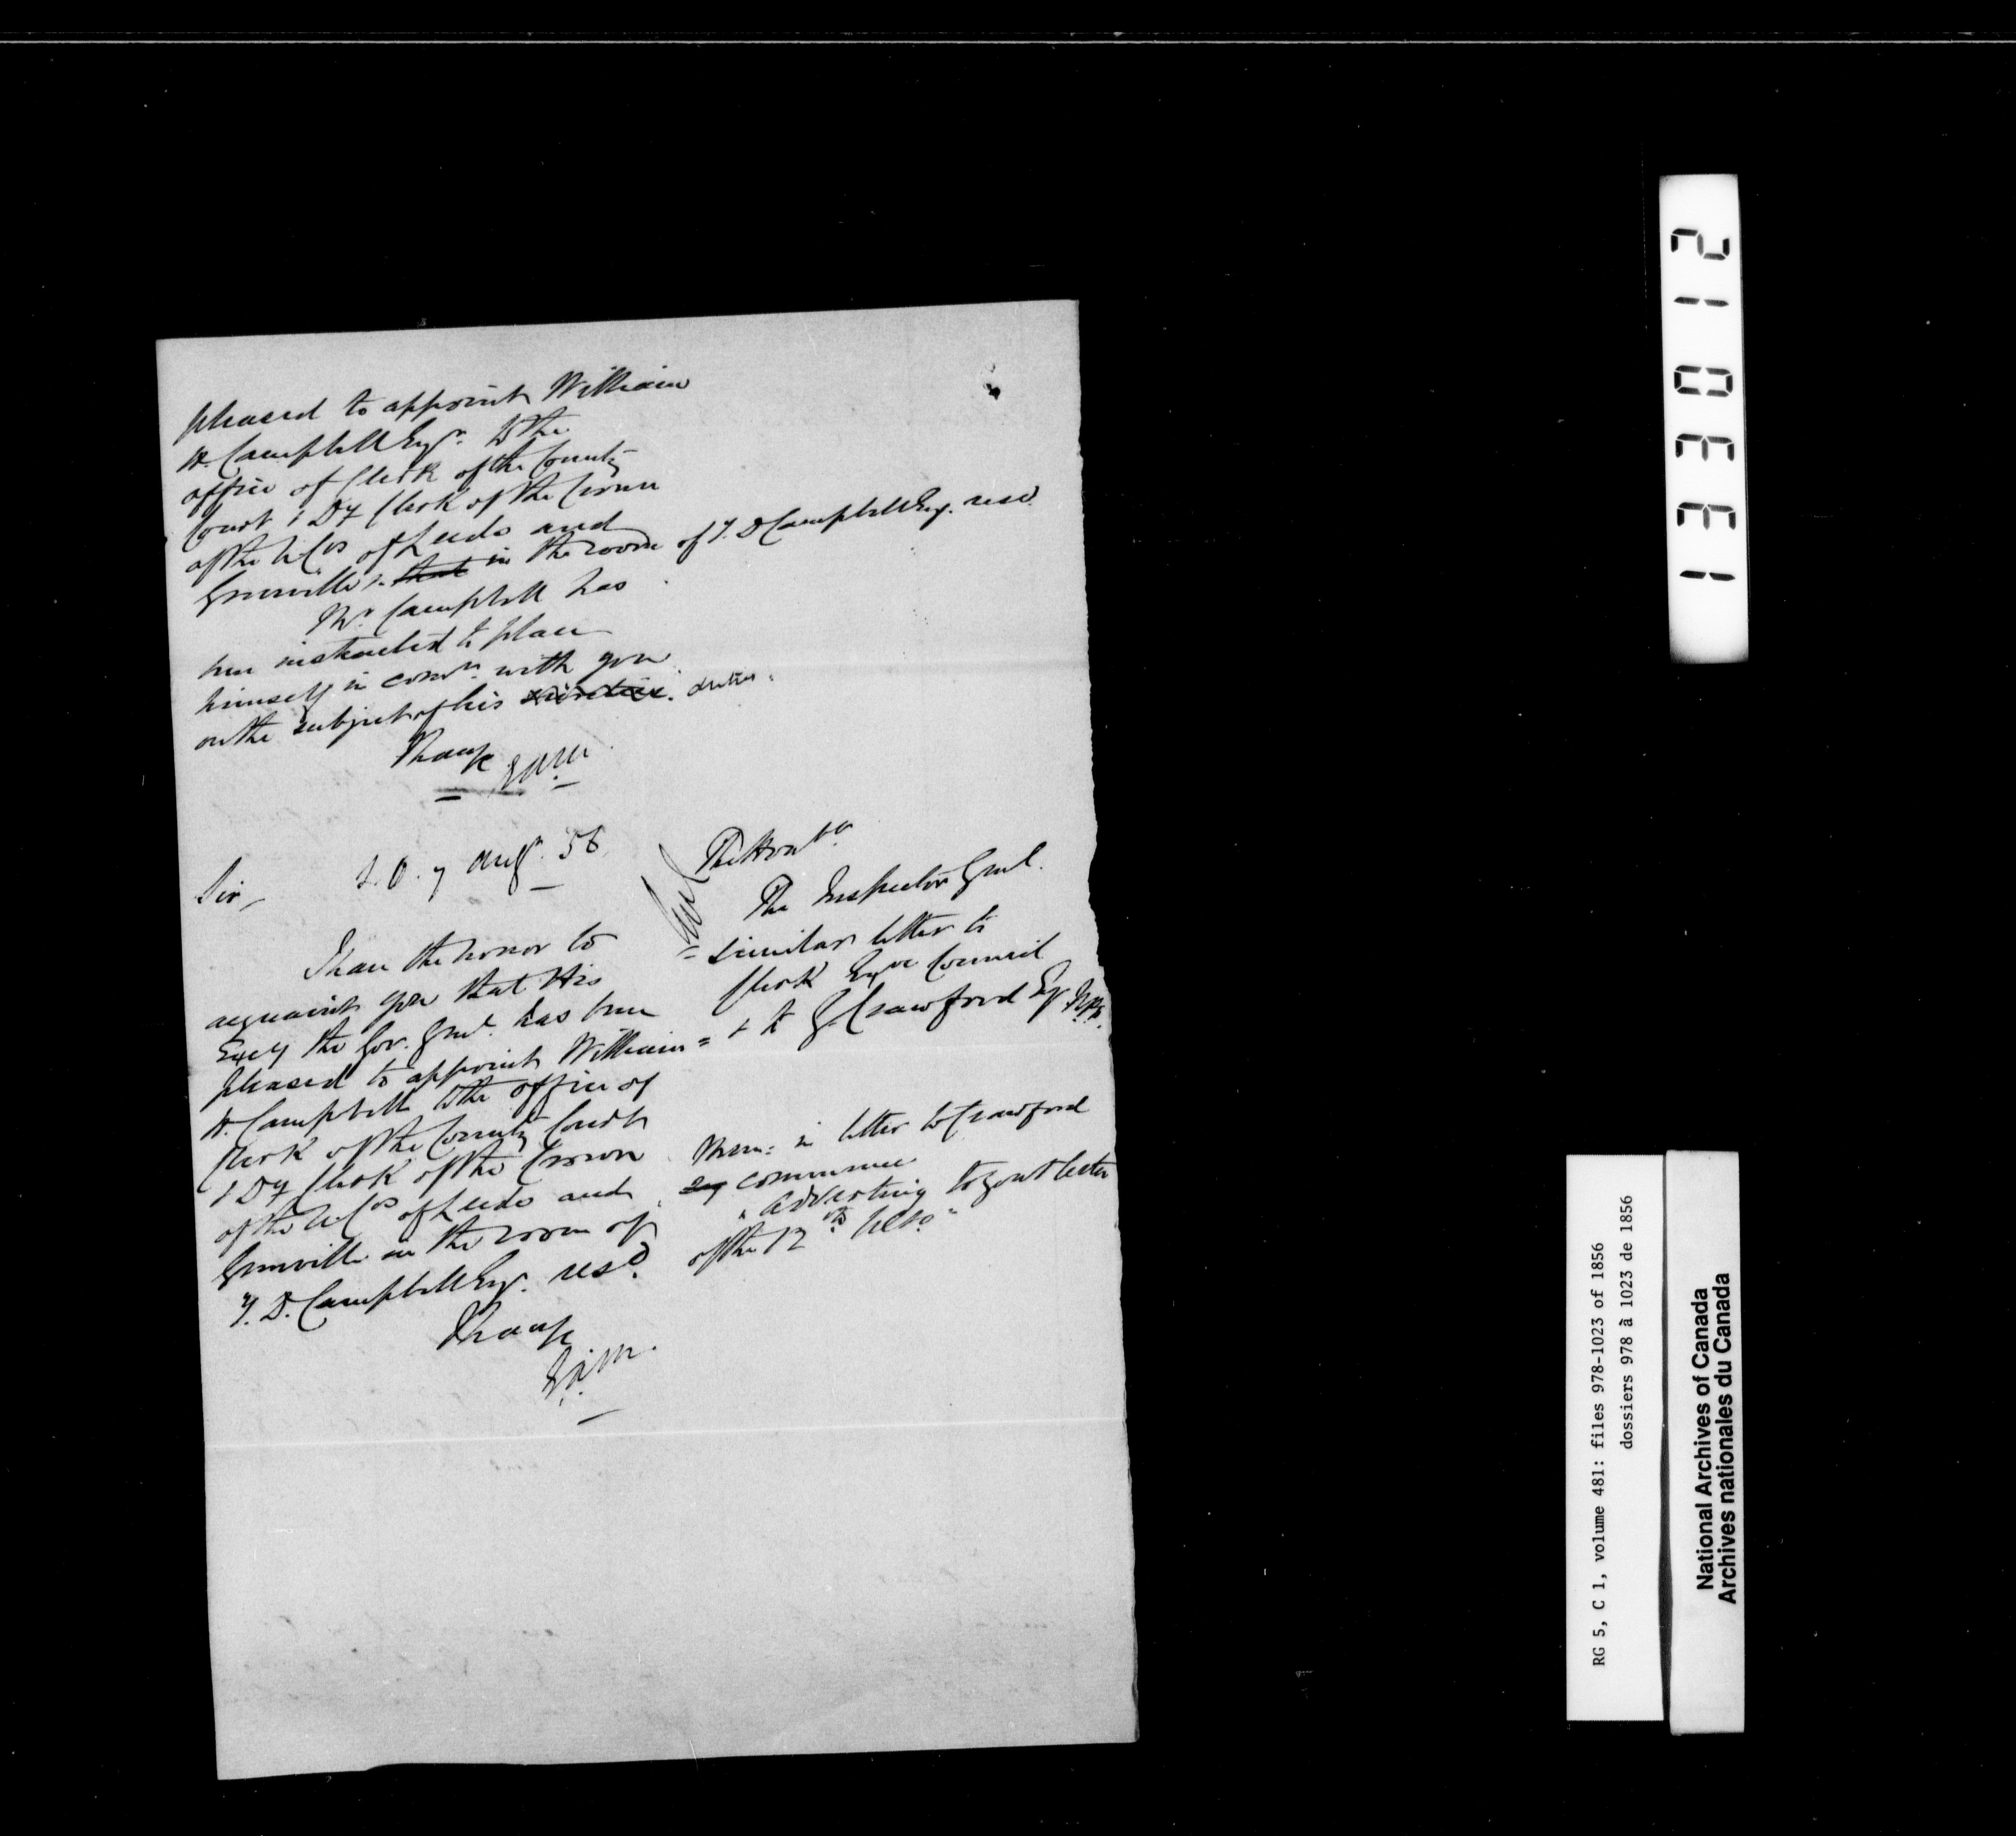 pleased to appoint William
H. Campbell Esqr. to the
office of Clerk of the County
Court & Dy Clerk of the Crown
of the U. Cos of Leeds and
Grenville, that in the room of J. D Campbell Esq. resd.
Mr. Campbell has
been instructed to place
himself in comn. with you
on the subject of his duties.
I have
EAM.
S. O. 7 Augt. 56
Sir,
I have the honor to
acquaint you that His
Excy the Gov. Genl. has been
pleased to appoint William
H. Campbell to the office of
Clerk of the County Court
& Dy Clerk of the Crown
of the U. Cos of Leeds and
Grenville in the room of
J. D. Campbell Esqr. resd.
I have
E.A.M.
The Honble
The Inspector Genl.
= similar letter to
Clerk Exve Council
= & to G. Crawford Esq. M.P.P.
Mem: in letter to Crawford
commence
"Adverting to your letter
of the 12th ulto."
21033 1
RG 5, C 1, volume 481: files 978-1023 of 1856
dossiers 978 à 1023 de 1856
National Archives of Canada
Archives nationales du Canada